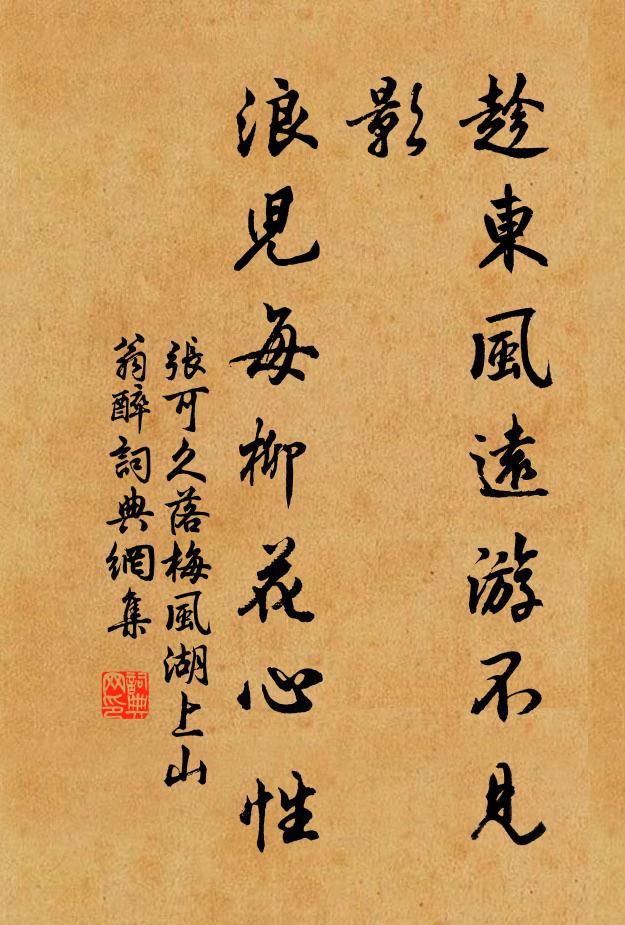 趁東風遠游不見
影
浪児每柳花心性
張可久落梅風湖上山
翁醉詞典網集
詞典
网印